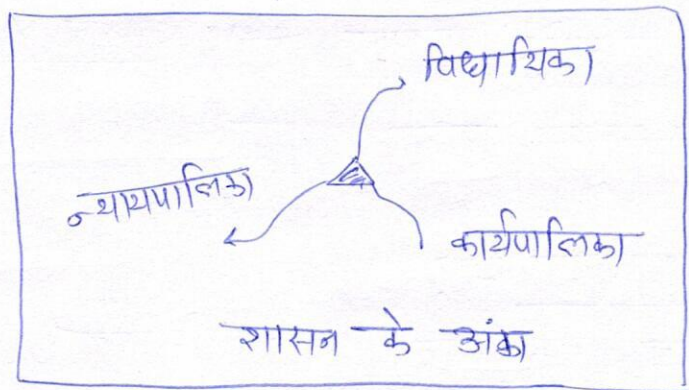 विधायिका
न्यायपालिका
कार्यपालिका
शासन के अंक